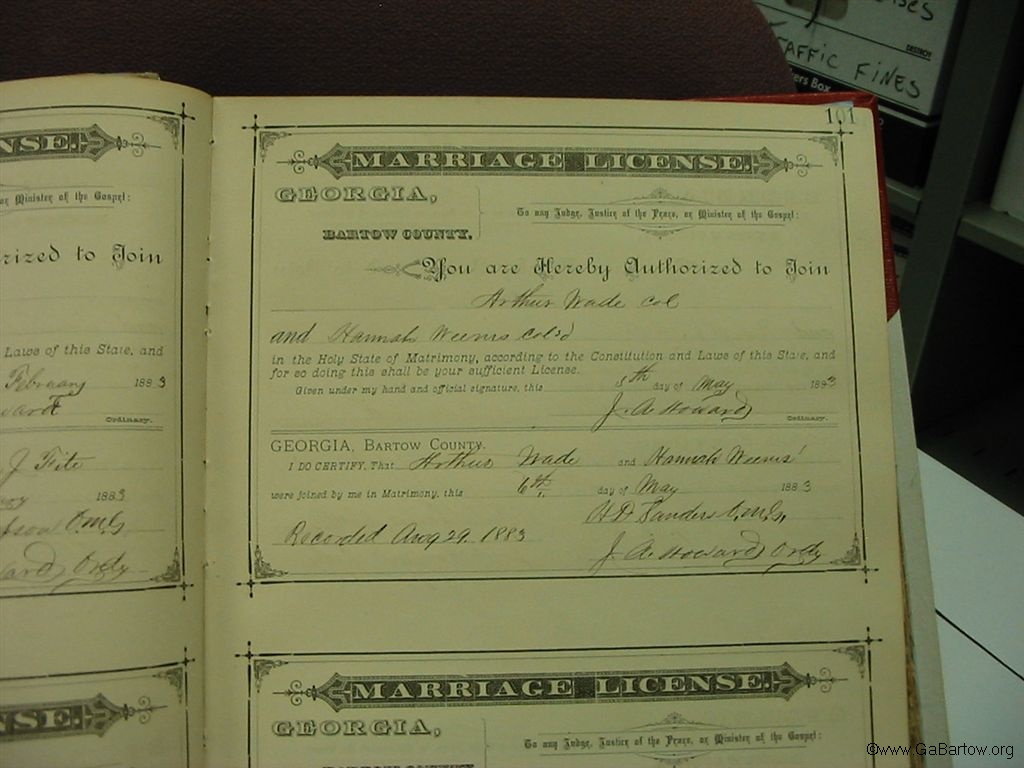 ses
DESTROY
TRAFFIC FINES
ers Box
101
NSE.
or Minister of the Gospel:
rized to Join
Laws of this State, and
February 1883
ward
Ordinary.
J Fite
1883
O.M.G.
ard Ordy
NSE.
MARRIAGE LICENSE.
GEORGIA,
BARTOW COUNTY.
To any Judge, Justice of the Peace, or Minister of the Gospel:
You are Hereby Authorized to Join
Arthur Wade col
and Hannah Weems col'd
in the Holy State of Matrimony, according to the Constitution and Laws of this State, and
for so doing this shall be your sufficient License.
Given under my hand and official signature, this 5th day of May 1883
J. A. Howard
Ordinary.
GEORGIA, BARTOW COUNTY.
I DO CERTIFY, That Arthur Wade and Hannah Weems
were joined by me in Matrimony, this 6th day of May 1883
Sanders O.M.G.
Recorded Aug 29. 1883
J. A. Howard Ordy
MARRIAGE LICENSE.
GEORGIA,
To any Judge, Justice of the Peace, or Minister of the Gospel:
BARTOW COUNTY
©www.GaBartow.org